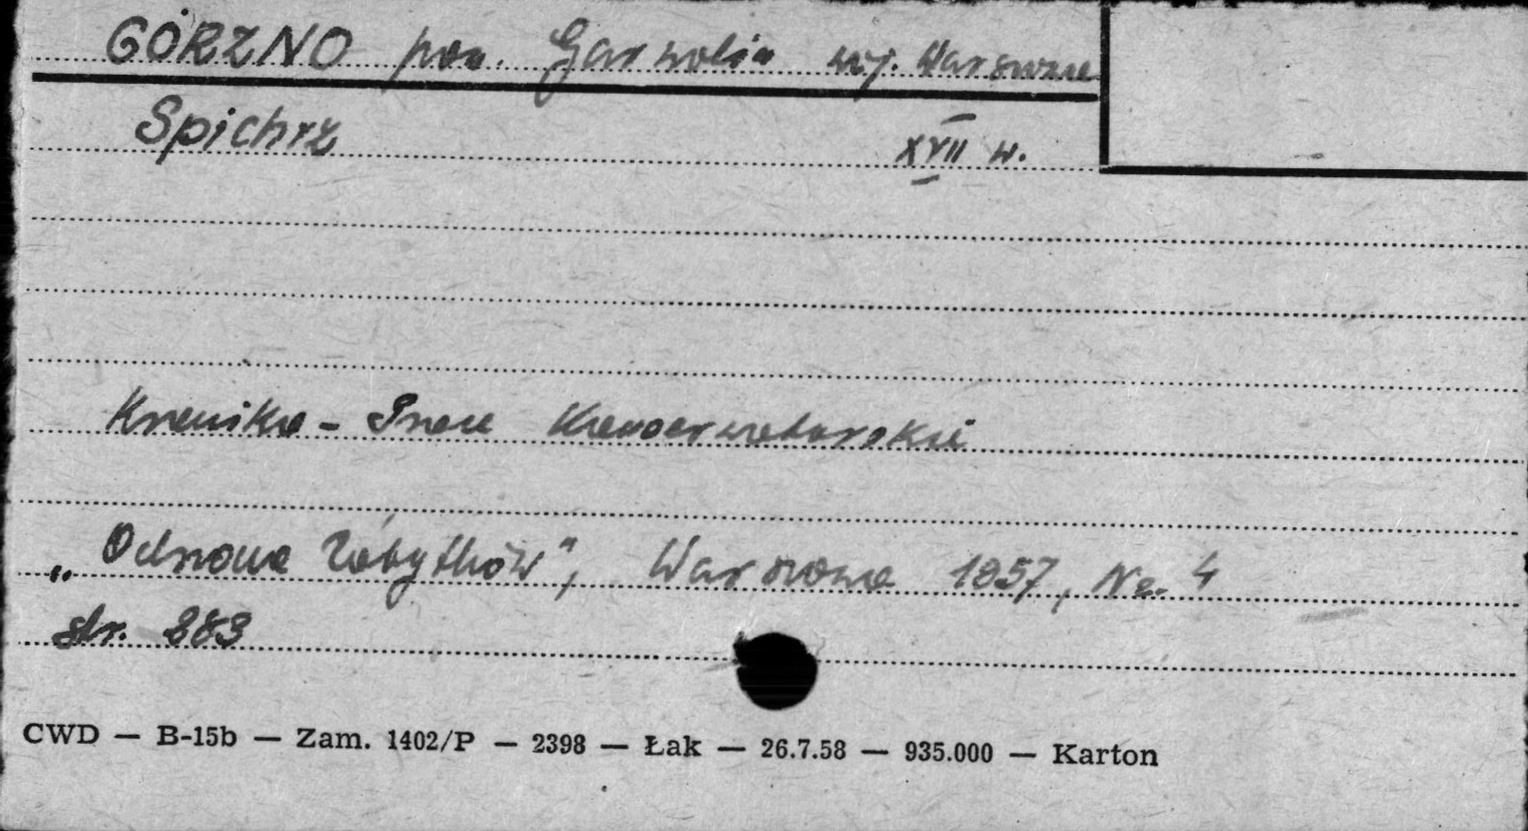 GÓRZNO pow. Garwolin woj. Warszawa
Spichrz XVII w.
Kronika - Prace Konserwatorskie
„Ochrona Zabytków”, Warszawa 1957, Nr. 4
str. 283
CWD — B-15b — Zam. 1402/P — 2398 — Łak — 26.7.58 — 935.000 — Karton